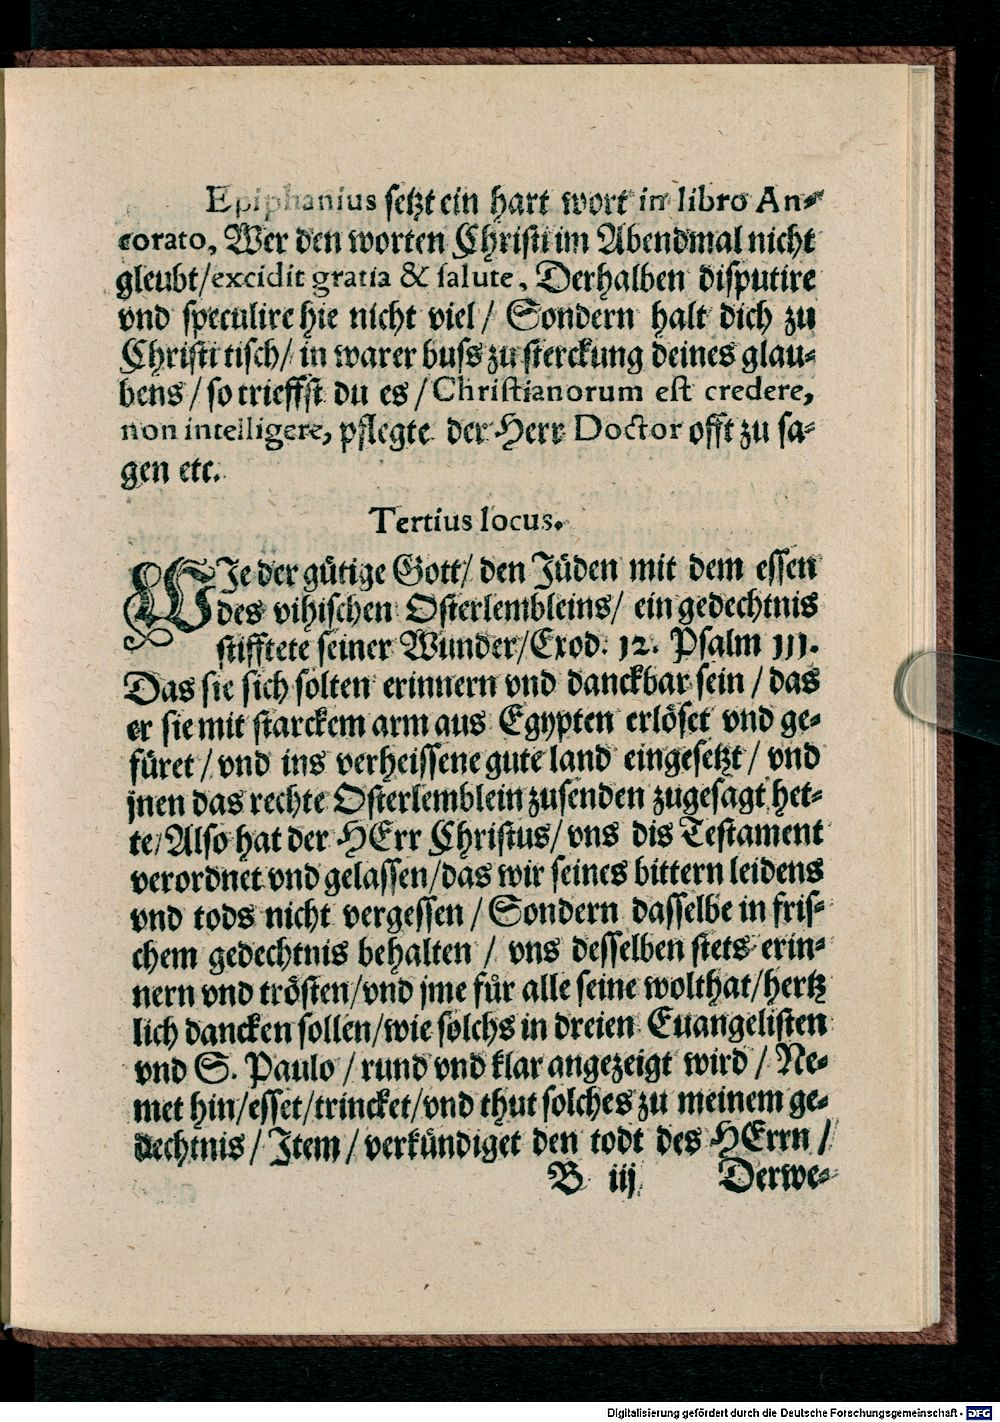 Epiphanius setzt ein hart wort in libro An-
corato, Wer den worten Christi im Abendmal nicht
gleubt/excidit gratia & salute, Derhalben disputire
vnd speculire hie nicht viel/ Sondern halt dich zu
Christi tisch/ in warer buss zu sterckung deines glau-
bens/ so trieffst du es/ Christianorum est credere,
non intelligere, pflegte der Herr Doctor offt zu sa-
gen etc.
Tertius locus.
WJe der gütige Gott/ den Jüden mit dem essen
des vihischen Osterlembleins/ ein gedechtnis
stifftete seiner Wunder/Exod. 12. Psalm 111.
Das sie sich solten erinnern vnd danckbar sein/ das
er sie mit starckem arm aus Egypten erlöset vnd ge-
füret/ vnd ins verheissene gute land eingesetzt/ vnd
jnen das rechte Osterlemblein zusenden zugesagt het-
te/Also hat der HErr Christus/ vns dis Testament
verordnet vnd gelassen/das wir seines bittern leidens
vnd tods nicht vergessen/ Sondern dasselbe in fris-
chem gedechtnis behalten/ vns desselben stets erin-
nern vnd trösten/vnd jme für alle seine wolthat/hertz
lich dancken sollen/wie solchs in dreien Euangelisten
vnd S. Paulo/ rund vnd klar angezeigt wird/ Ne-
met hin/esset/trincket/vnd thut solches zu meinem ge-
dechtnis/ Jtem/ verkündiget den todt des HErrn/
B iij Derwe-
Digitalisierung gefördert durch die Deutsche Forschungsgemeinschaft - DFG